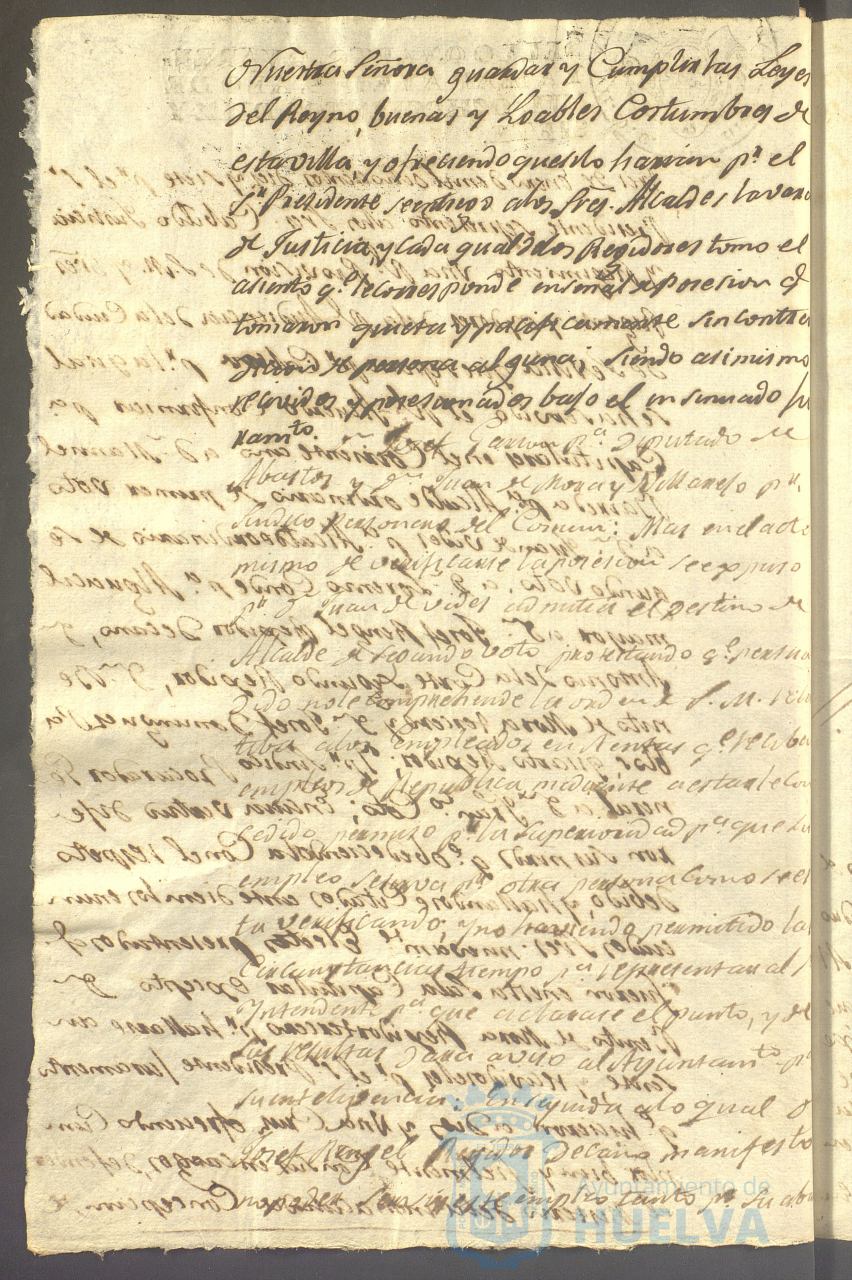 Nuestra Señora guardar y Cumplir las Leyes
del Reyno, buenas y Loables Costumbres de
esta villa, y ofreciendo que asi lo harian pr. el
Sr. Presidente se entrego a los Sres. Alcaldes la vara
de Justicia y cada qual de los Regidores tomo el
asiento qe. le corresponde en señal de posesion q
tomaron quieta y pacificamente sin contra
de persona alguna; siendo asimismo
recividos y posesionados bajo el insinuado ju
ramto.
Garcia pa. Diputado de
Abastos y Dn. Juan de Mora y Villarejo pr.
Sindico Personero del Comun: Mas en el acto
mismo de verificarse la posesion se expuso
pr. D. Juan de Vides admitia el Destino de
Alcalde de segundo voto protestando qe. persua
dido no le comprehende la orden de S. M. rela
tiba a los empleados en Rentas qe. reciban
empleos de Republica, mediante a estarle con
cedido permiso pr. la Superioridad pa. que su
empleo se sirva pr. otra persona como se es
ta verificando; y no haviendo permitido las
circunstancias tiempo pa. representar al S
Yntendente pa. que aclarase el punto, y de
sus resultas daria aviso al Ayuntamto. pa.
su inteligencia: En seguida a lo qual D
Josef Rengel Regidor Decano manifesto
no poder servir este empleo tanto pr. su
Ayuntamiento de
HUELVA